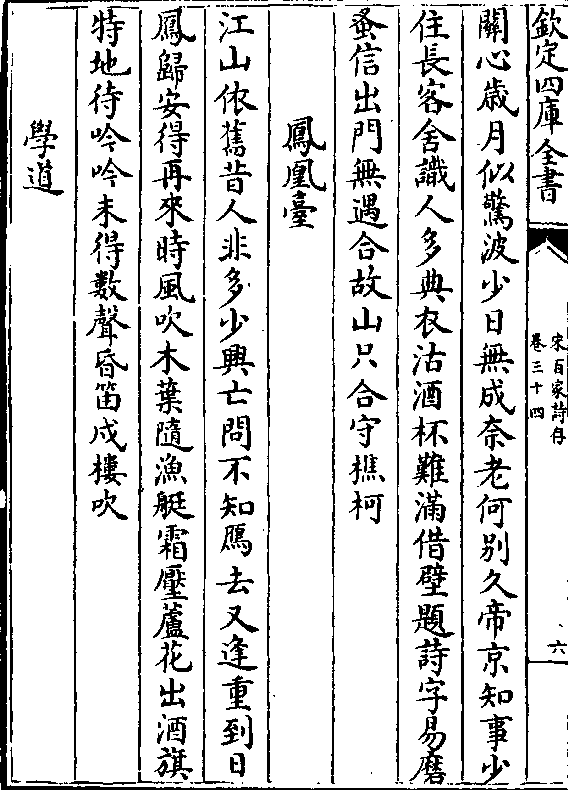 欽定四庫全書
宋百家詩存
卷三十四
六
關心歲月似驚波少日無成奈老何别久帝京知事少
住長客舍識人多典衣沽酒杯難滿借壁題詩字易磨
蚤信出門無遇合故山只合守樵柯
鳳凰臺
江山依舊昔人非多少興亡問不知鴈去又逢重到日
鳳歸安得再來時風吹木葉隨漁艇霜壓蘆花出酒旗
特地待吟吟未得數聲昏笛戍樓吹
學道